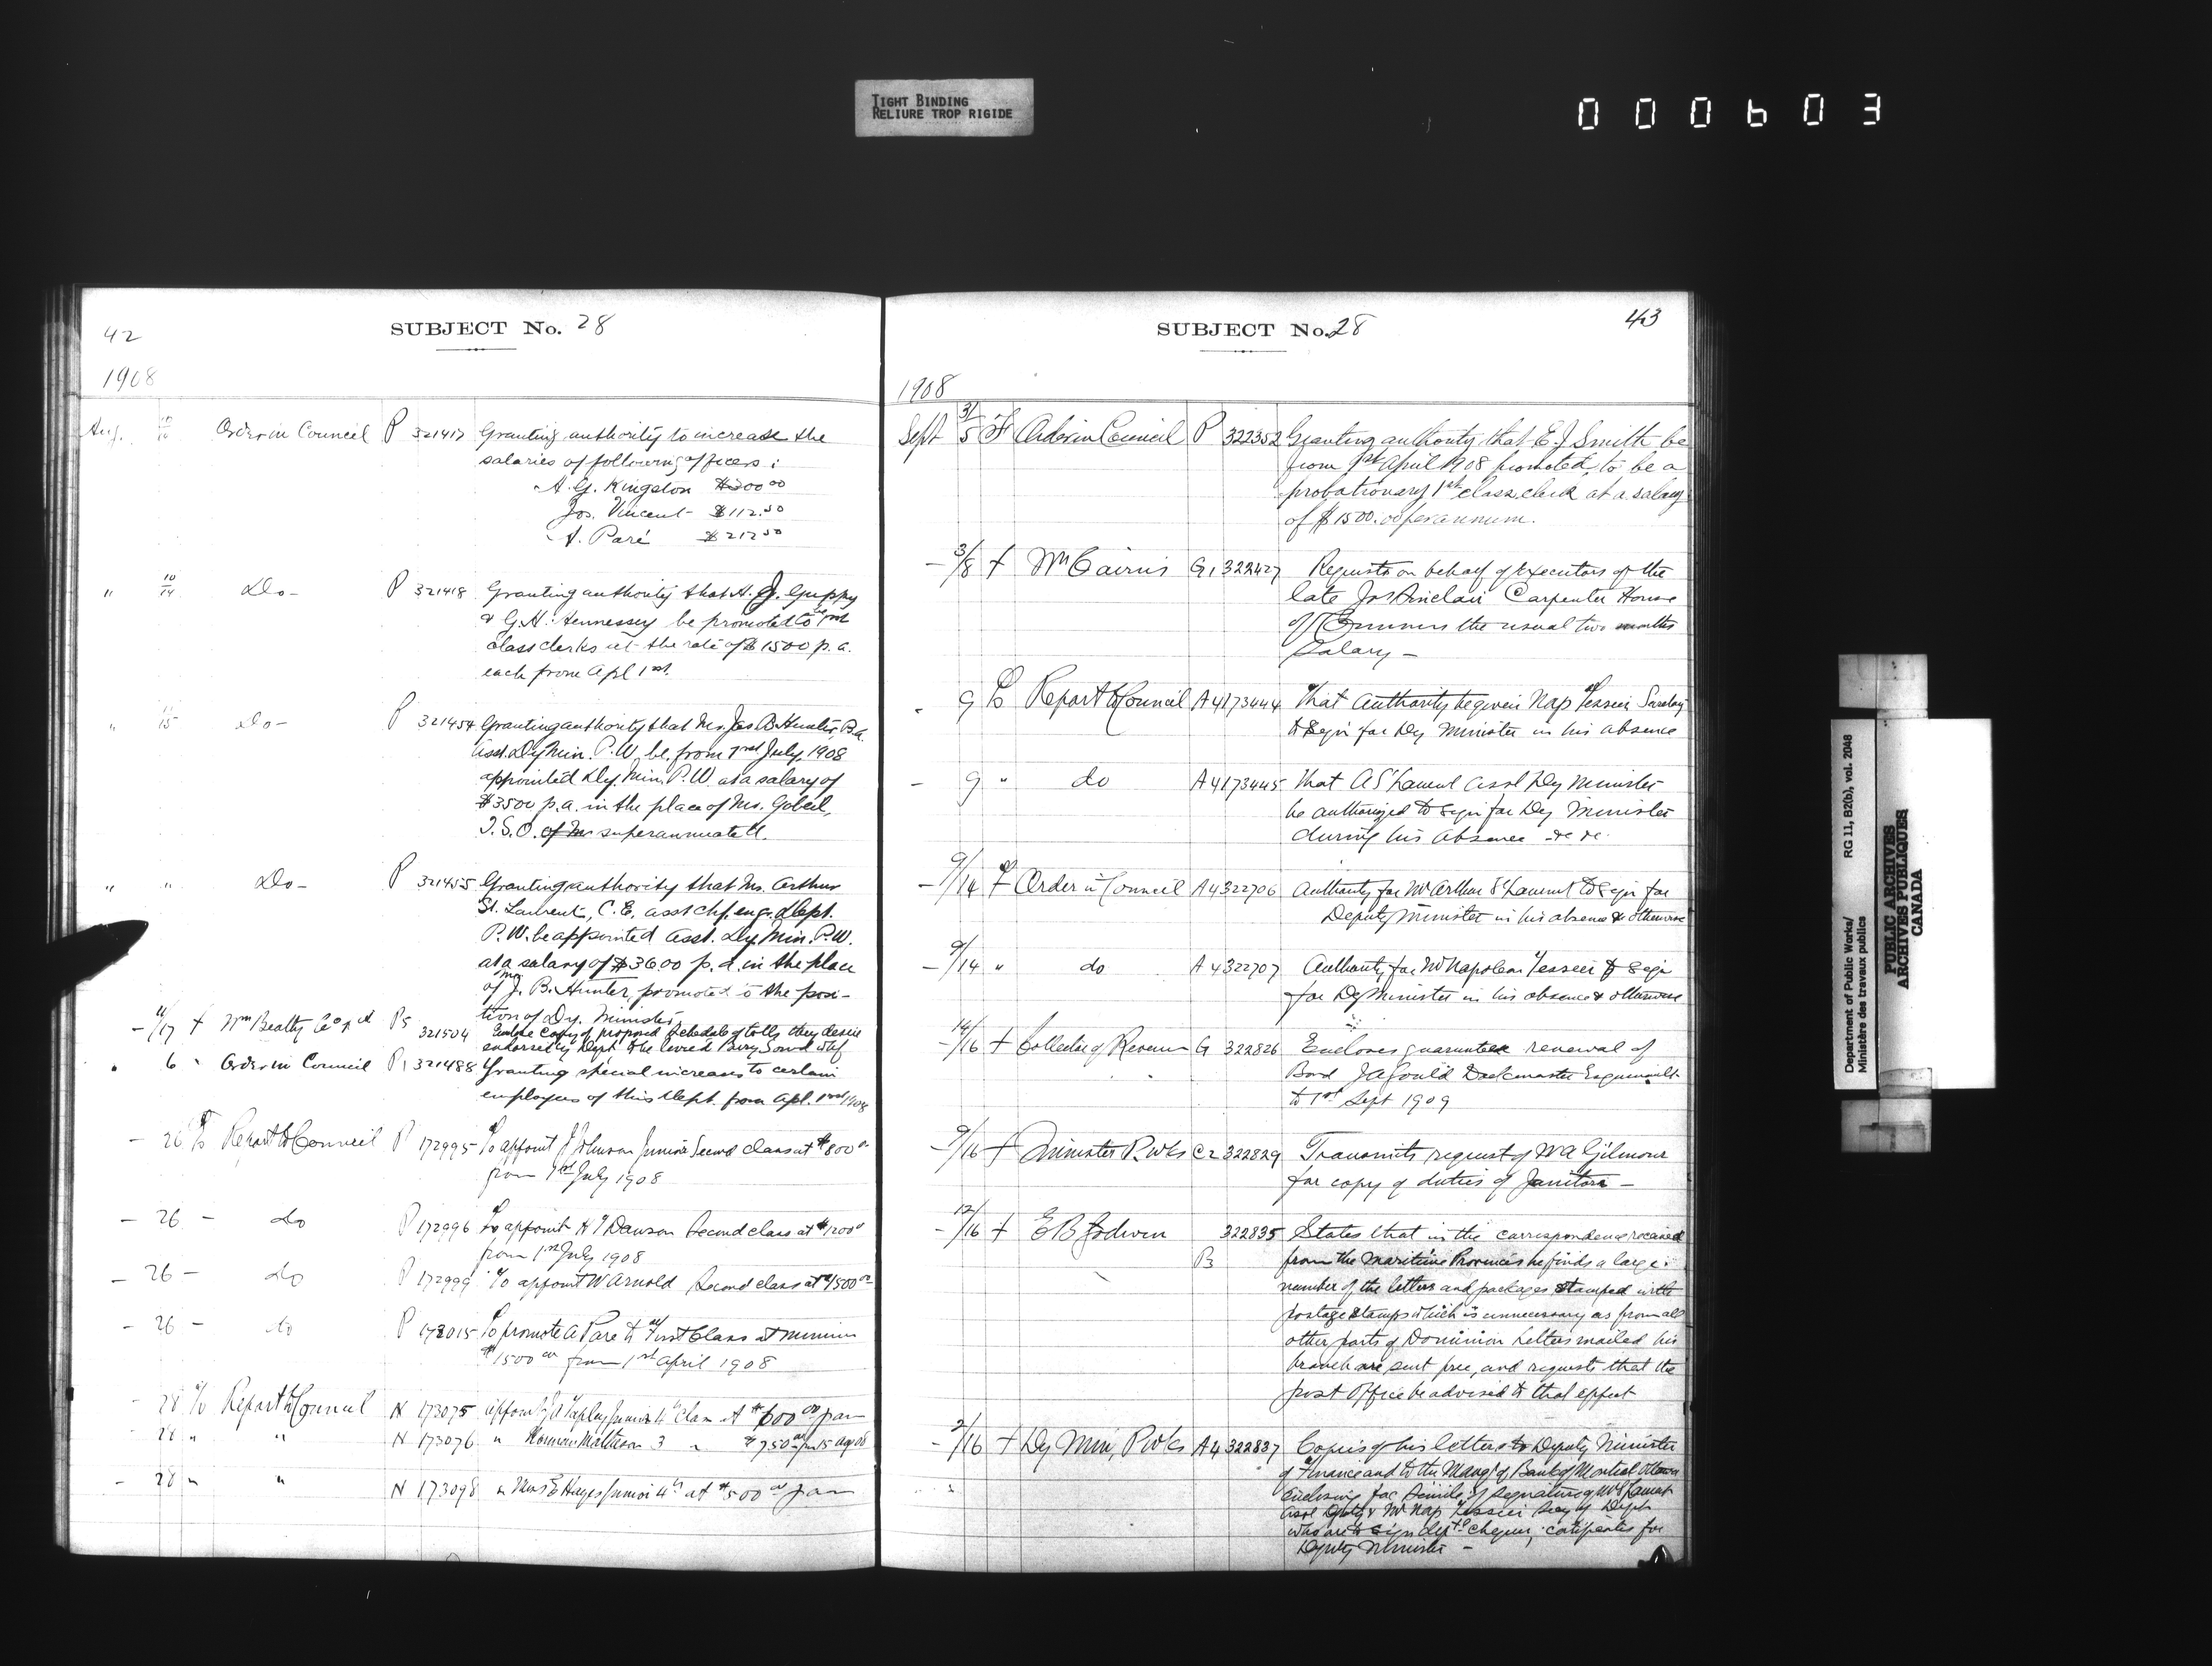 TIGHT BINDING
RELIURE TROP RIGIDE
000603
42
SUBJECT No. 28
1908
Aug. Order in Council P 321417 Granting authority to increase the
salaries of following officers:
A. G. Kingston $200 00
Jos. Vincent $112.50
A. Paré $212 50
" 10/14 Do- P 321418 Granting authority that H. J. Guppy
& G. H. Hennessey be promoted to be 1st
class clerks at the rate of $1500 p. a.
each from Apl 1st.
" 15 Do- P 321454 Granting authority that Mr. Jas B. Hunter, B.a.
Asst. Dy Min. P. W. be, from 1st July, 1908
appointed Dy. Min. P. W. at a salary of
$3500 p. a. in the place of Mr. Gobeil,
I. S. O. of Mr superannuated.
" " Do- P 321455 Granting authority that Mr. Arthur
St. Laurent, C. E. asst chf. eng. Dept.
P. W. be appointed Asst. Dy. Min. P. W.
at a salary of $3600 p. a. in the place
of Mr J. B. Hunter, promoted to the posi-
tion of Dy. Minister
- /17 + Wm Beatty Co P5 321504 copy of proposed schedule of tolls they desire
endorsed by Dept to be levied Parry Sound Whf
" 6 Order in Council P1 321488 Granting special increases to certain
employees of this Dept. from Apl. 1st 1908
- 26 To Report to Council P 172995 To appoint J Johnson Junior Second class at $800
from 1st July 1908
- 26 - do P 172996 To appoint H T Dawson Second class at $1200
from 1st July 1908
- 26 - do P 172999 To appoint W Arnold Second class at $1500 00
- 26 - do P 173015 To promote A Pare to First Class at minimum
$1500 00 from 1st April 1908
- 28 To Report to Council N 173075 appoint Junior 4th Class at $600 00 p an
28 " " N 173076 " Matheson 3 " $750 from 15 Aug 08
- 28 " " N 173098 " Miss E Hayes Junior 4th at $500 00 p an
SUBJECT No. 28
43
1908
Sept 31/5 F Order in Council P 322352 Granting authority that E. J Smith be
from 1st April 1908 promoted to be a
probationary 1st class clerk at a salary
of $1500.00 per annum.
- 3/8 + Wm Cairns G1 322427 Requests on behalf of Executors of the
late Jas Sinclair Carpenter House
of Commons the usual two months
Salary -
- 9 To Report to Council A4 173444 That Authority be given Nap Tessier Secretary
to Sign for Dy Minister in his absence
- 9 " do A4 173445 That A St Laurent Asst Dy Minister
be authorized to sign for Dy Minister
during his absence &c &c.
- 9/14 F Order in Council A4 322706 Authority for Mr Arthur St Laurent to sign for
Deputy Minister in his absence & otherwise
- 9/14 " do A4 322707 Authority for Mr Napoleon Tessier to sign
for Dy Minister in his absence & otherwise
- 14/16 + Collector of Revenue G 322826 Encloses guarantee renewal of
Bond J A Gould Dockmaster Esquimalt
to 1st Sept 1909
- 9/16 + Minister P. Wks C2 322829 Transmits request of W A Gilmour
for copy of duties of Janitors -
- 12/16 + E B Godwin B 322835 States that in the correspondence received
from the Maritime Provinces he finds a large
number of the letters and packages stamped with
postage stamps which is unnecessary as from all
other parts of Dominion letters mailed his
branch are sent free, and requests that the
post Office be advised to that effect
- 2/16 + Dy Min, P. Wks A4 322837 Copies of his letters to Deputy Minister
of Finance and to the Mangr of Bank of Montreal Ottawa
enclosing fac simile of signature of Mr St Laurent
Asst Deputy & Mr Nap Tessier Secy of Dept
who are to sign cheques, certificates for
Deputy Minister -
Department of Public Works/ RG 11, B2(b), vol. 2048
Ministère des travaux publics
PUBLIC ARCHIVES
ARCHIVES PUBLIQUES
CANADA